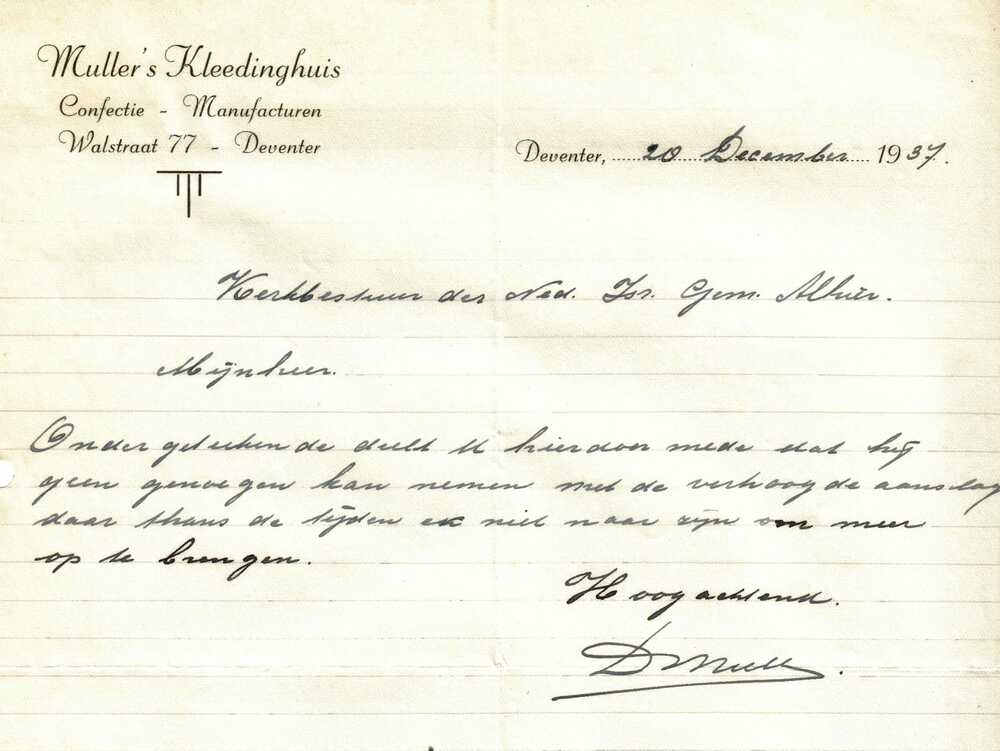 Muller's Kleedinghuis
Confectie - Manufacturen
Walstraat 77 - Deventer
Deventer, 20 December 1937.
Kerkbestuur der Ned. Isr. Gem. Alhier.
Mijnheer.
Ondergeteekende deelt U hierdoor mede dat hij
geen genoegen kan nemen met de verhoogde aanslag
daar thans de tijden er niet naar zijn om meer
op te brengen.
Hoogachtend.
D Muller.